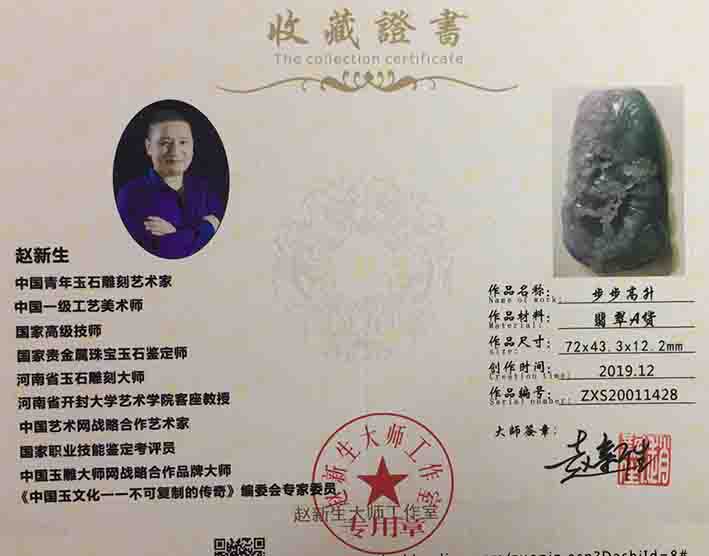 收藏證書
The collection certificate
赵新生
中国青年玉石雕刻艺术家
中国一级工艺美术师
国家高级技师
国家贵金属珠宝玉石鉴定师
河南省玉石雕刻大师
河南省开封大学艺术学院客座教授
中国艺术网战略合作艺术家
国家职业技能鉴定考评员
中国玉雕大师网战略合作品牌大师
《中国玉文化一一不可复制的传奇》编委会专家委员
作品名称: 步步高升
Name of work:
作品材料: 翡翠A货
Material:
作品尺寸: 72x43.3x12.2mm
Size:
创作时间: 2019.12
Creation time:
作品编号: ZXS20011428
Serial number:
大师签章: 赵新生
赵新生大师工作室
专用章
赵新生大师工作室